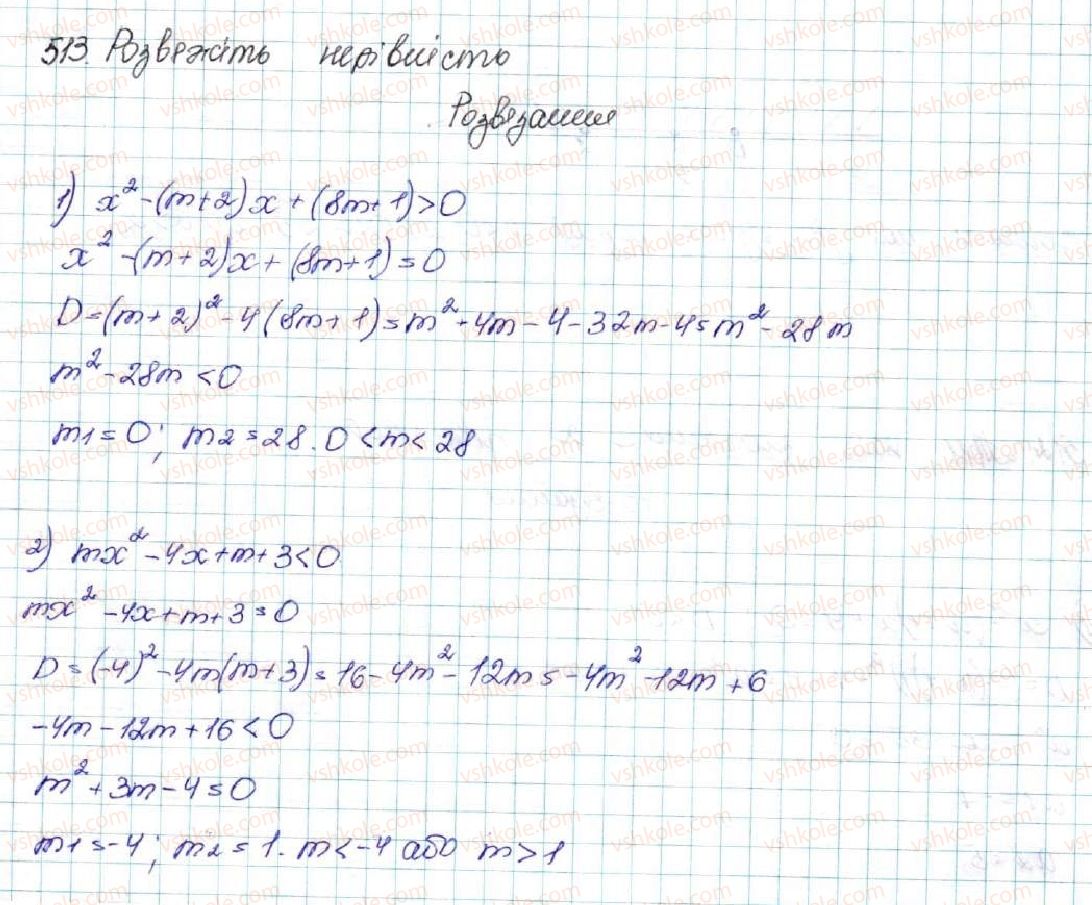 513. Розвяжіть нерівність
Розвязання
1) x² - (m+2)x + (8m+1) > 0
x² - (m+2)x + (8m+1) = 0
D = (m+2)² - 4(8m+1) = m² + 4m - 4 - 32m - 4 = m² - 28m
m² - 28m < 0
m1 = 0; m2 = 28. 0 < m < 28
2) mx² - 4x + m + 3 < 0
mx² - 4x + m + 3 = 0
D = (-4)² - 4m(m+3) = 16 - 4m² - 12m = -4m² - 12m + 6
-4m - 12m + 16 < 0
m² + 3m - 4 = 0
m1 = -4; m2 = 1. m < -4 або m > 1